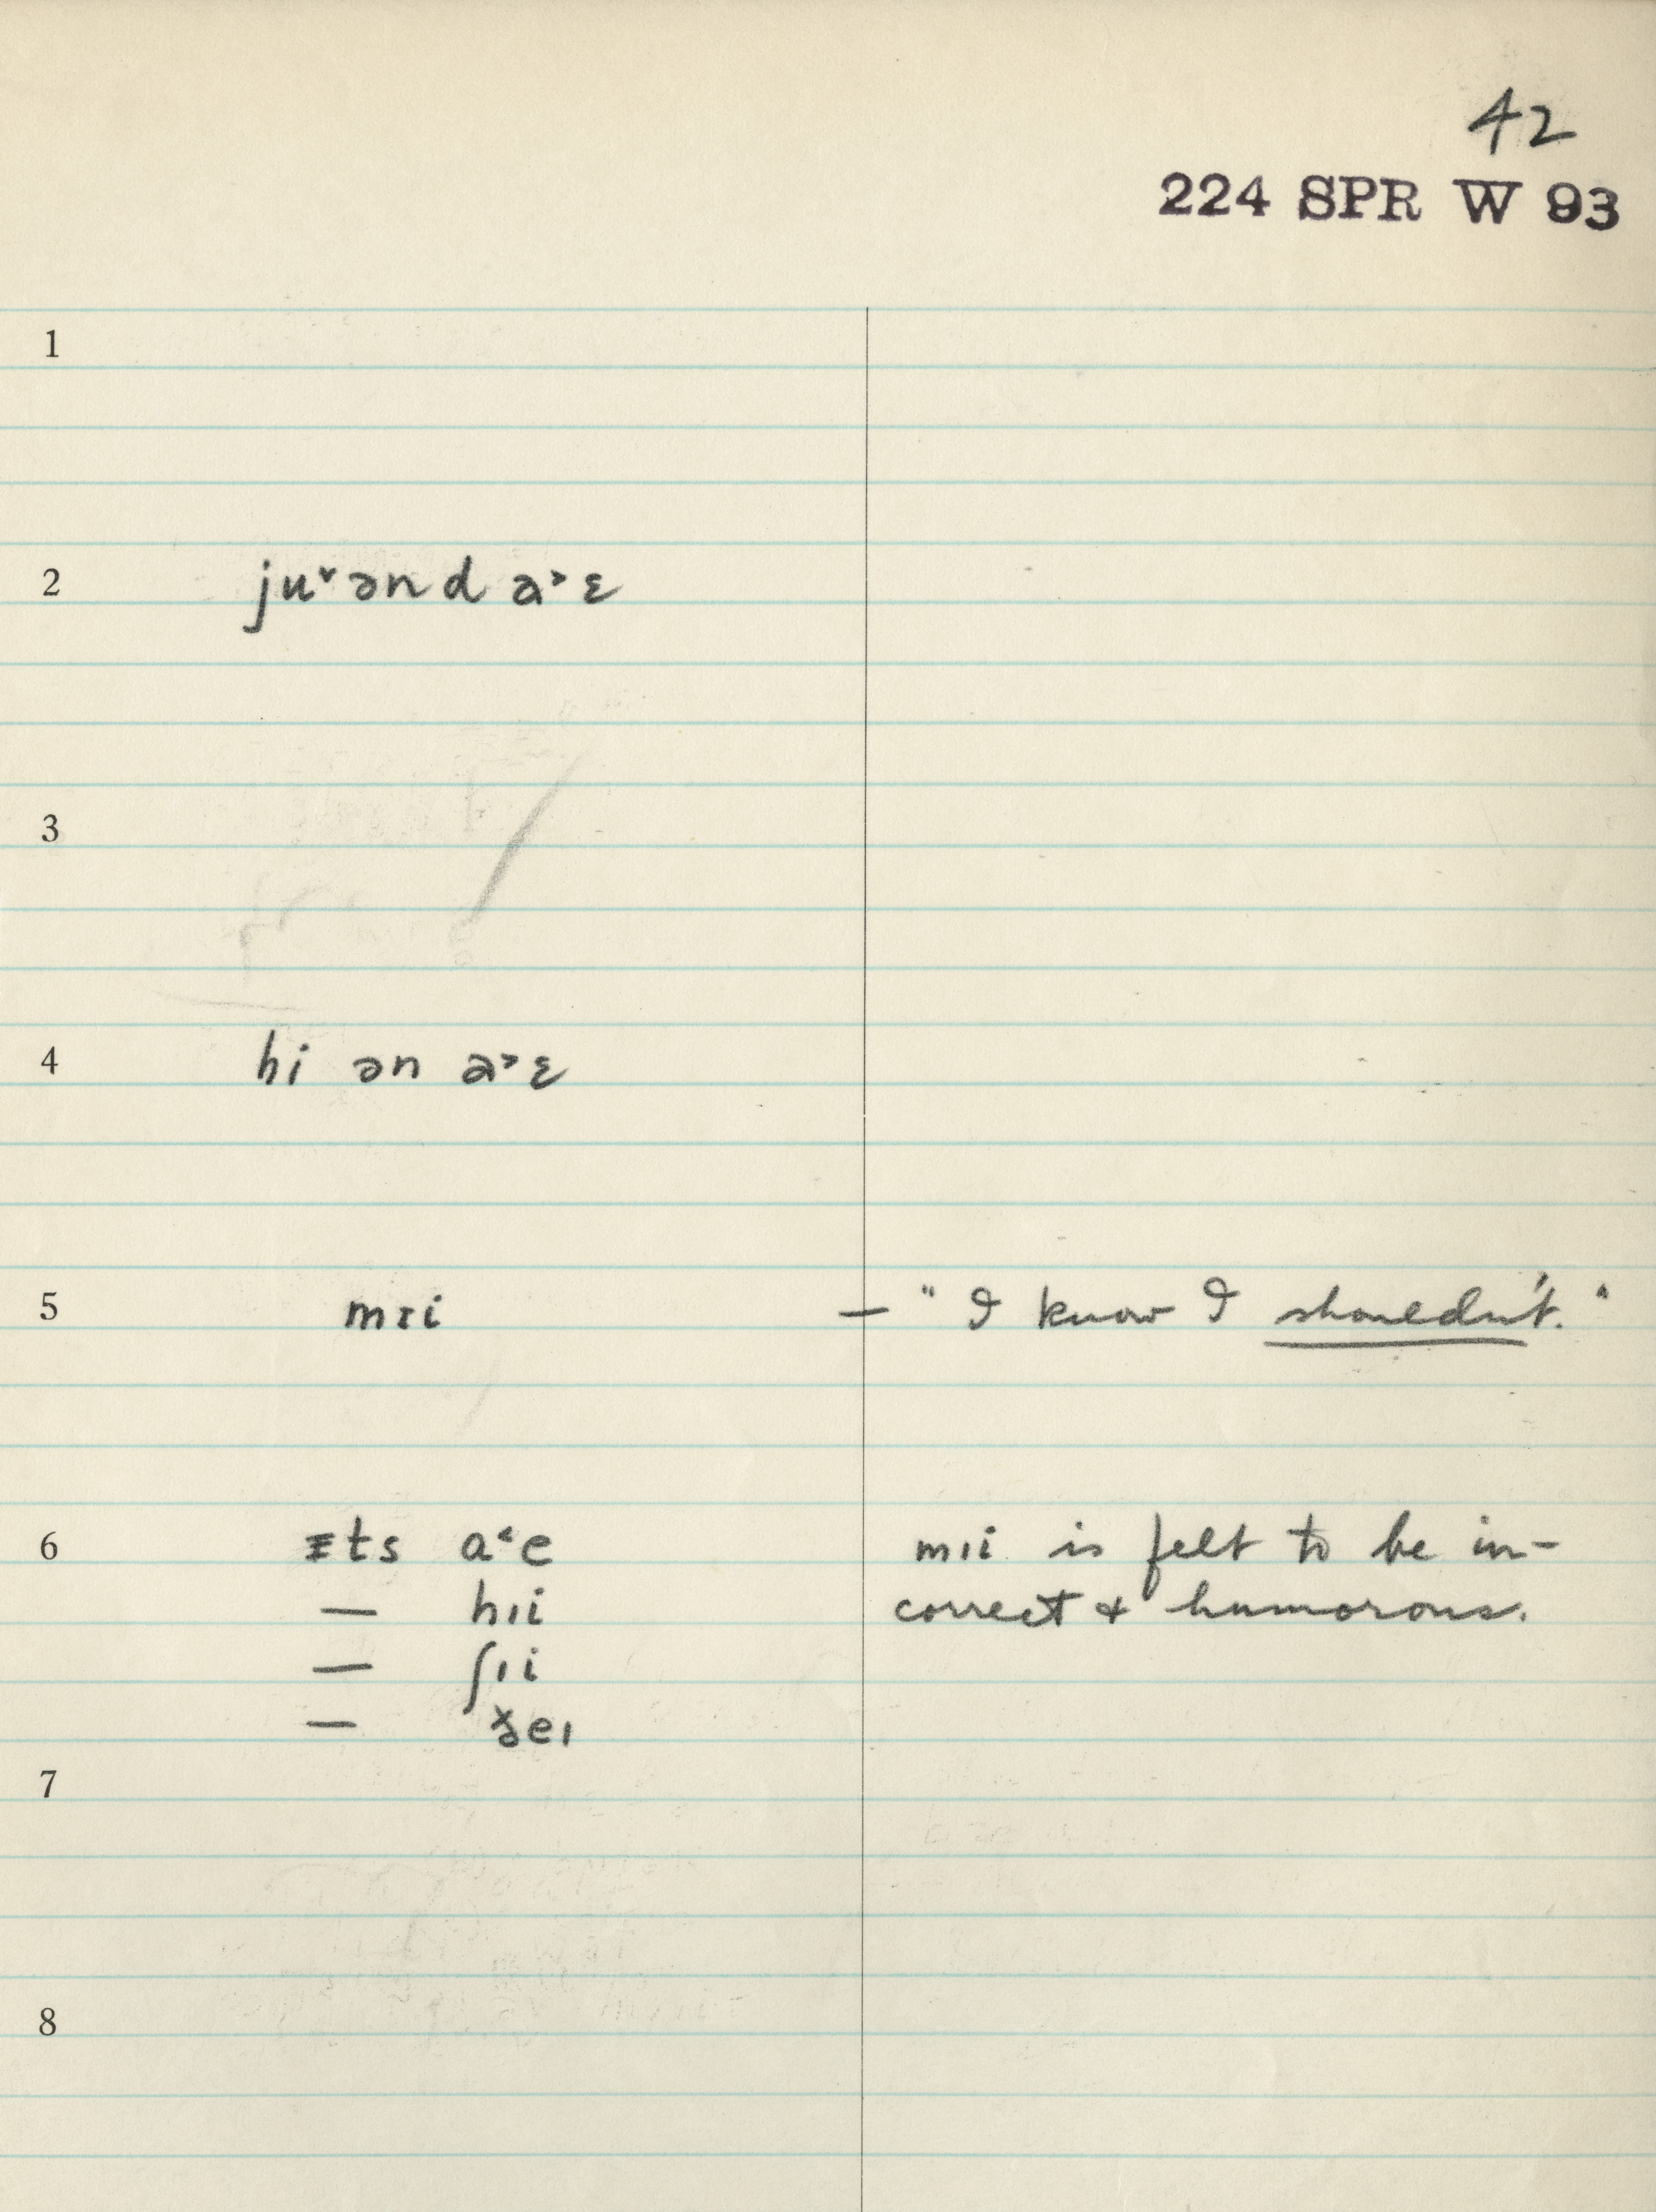 42
224 SPR W 93
1
2 ju˅ənd a˃ɛ
3
4 hi ən a˃ɛ
5 mɪi — "I know I shouldn't."
6 ɪts a˂e mɪi is felt to be in-
— hɪi correct & humorous.
— ʃɪi
— ðeɪ
7
8